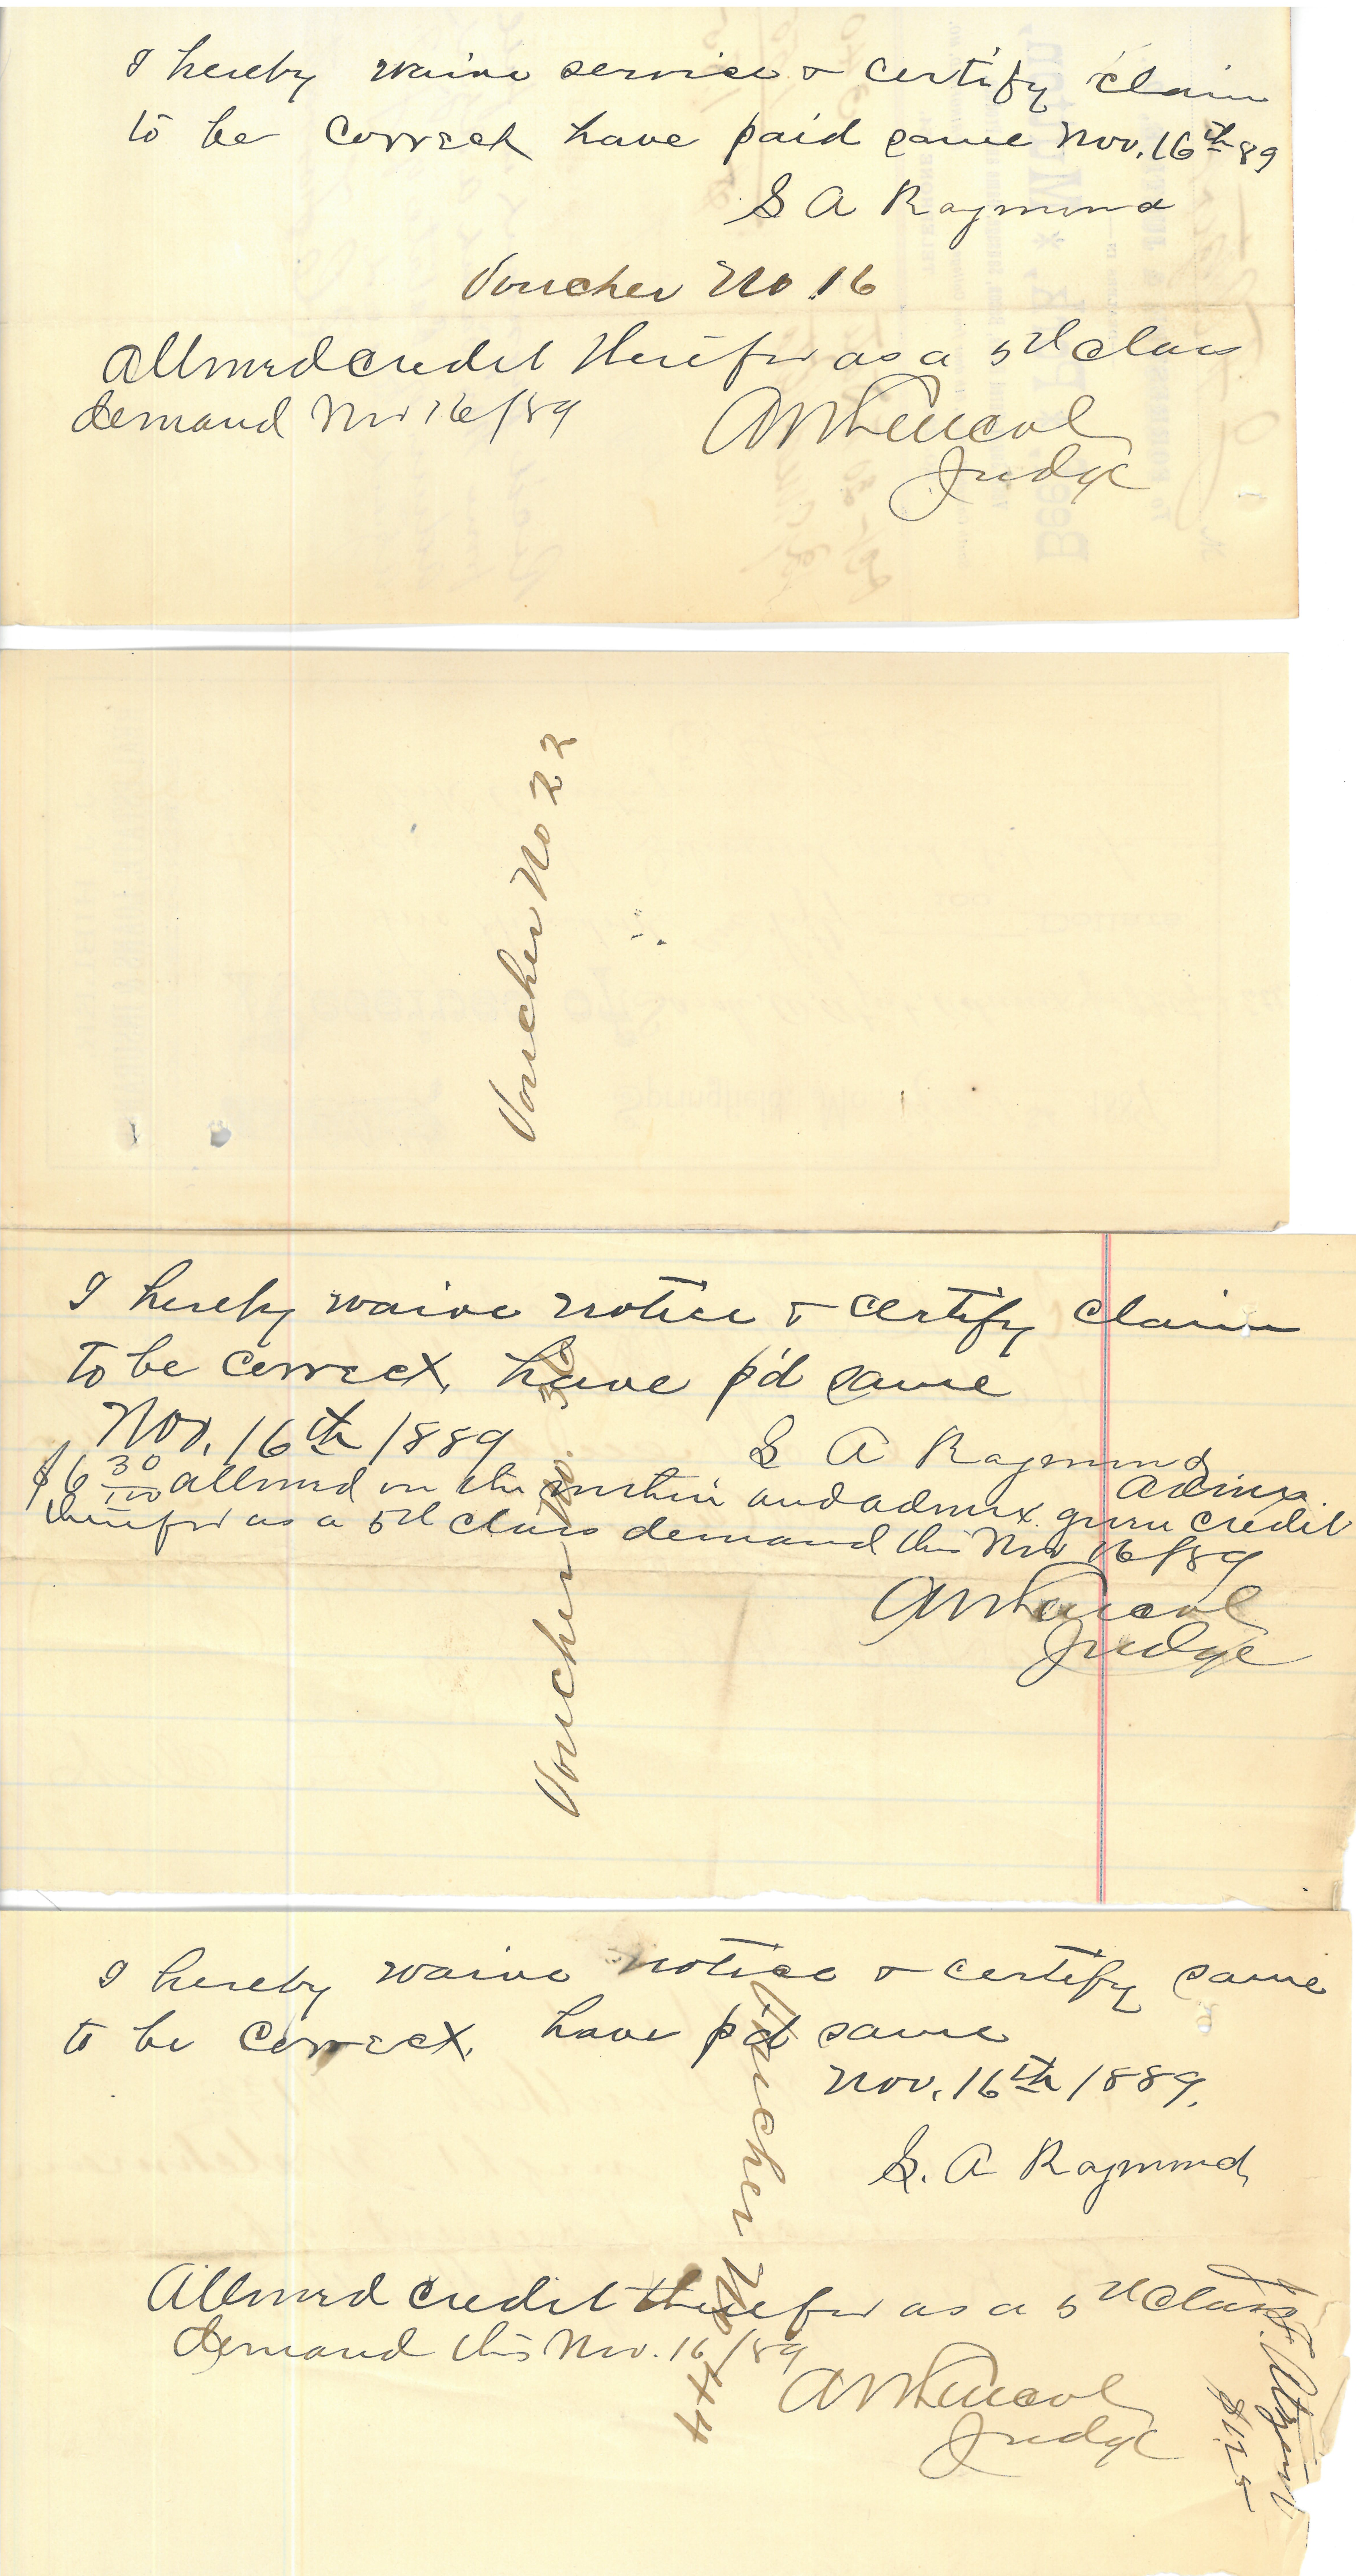 I hereby waive service & certify claim
to be correct have paid same Nov. 16th 89
S A Raymond
Voucher No 16
Allowed credit therefor as a 5th class
demand Nov 16/89
Judge
Voucher No 22
I hereby waive notice & certify claim
to be correct, have p'd same
Nov. 16th 1889
S A Raymond
Admx.
$6 30/100 allowed on the within and admx. given credit
therefor as a 5th class demand this Nov 16/89
Judge
Voucher No.
I hereby waive notice & certify same
to be correct, have p'd same
Nov. 16th 1889.
S. A Raymond
Allowed credit therefor as a 5th class
demand this Nov. 16/89
Judge
Voucher No 44